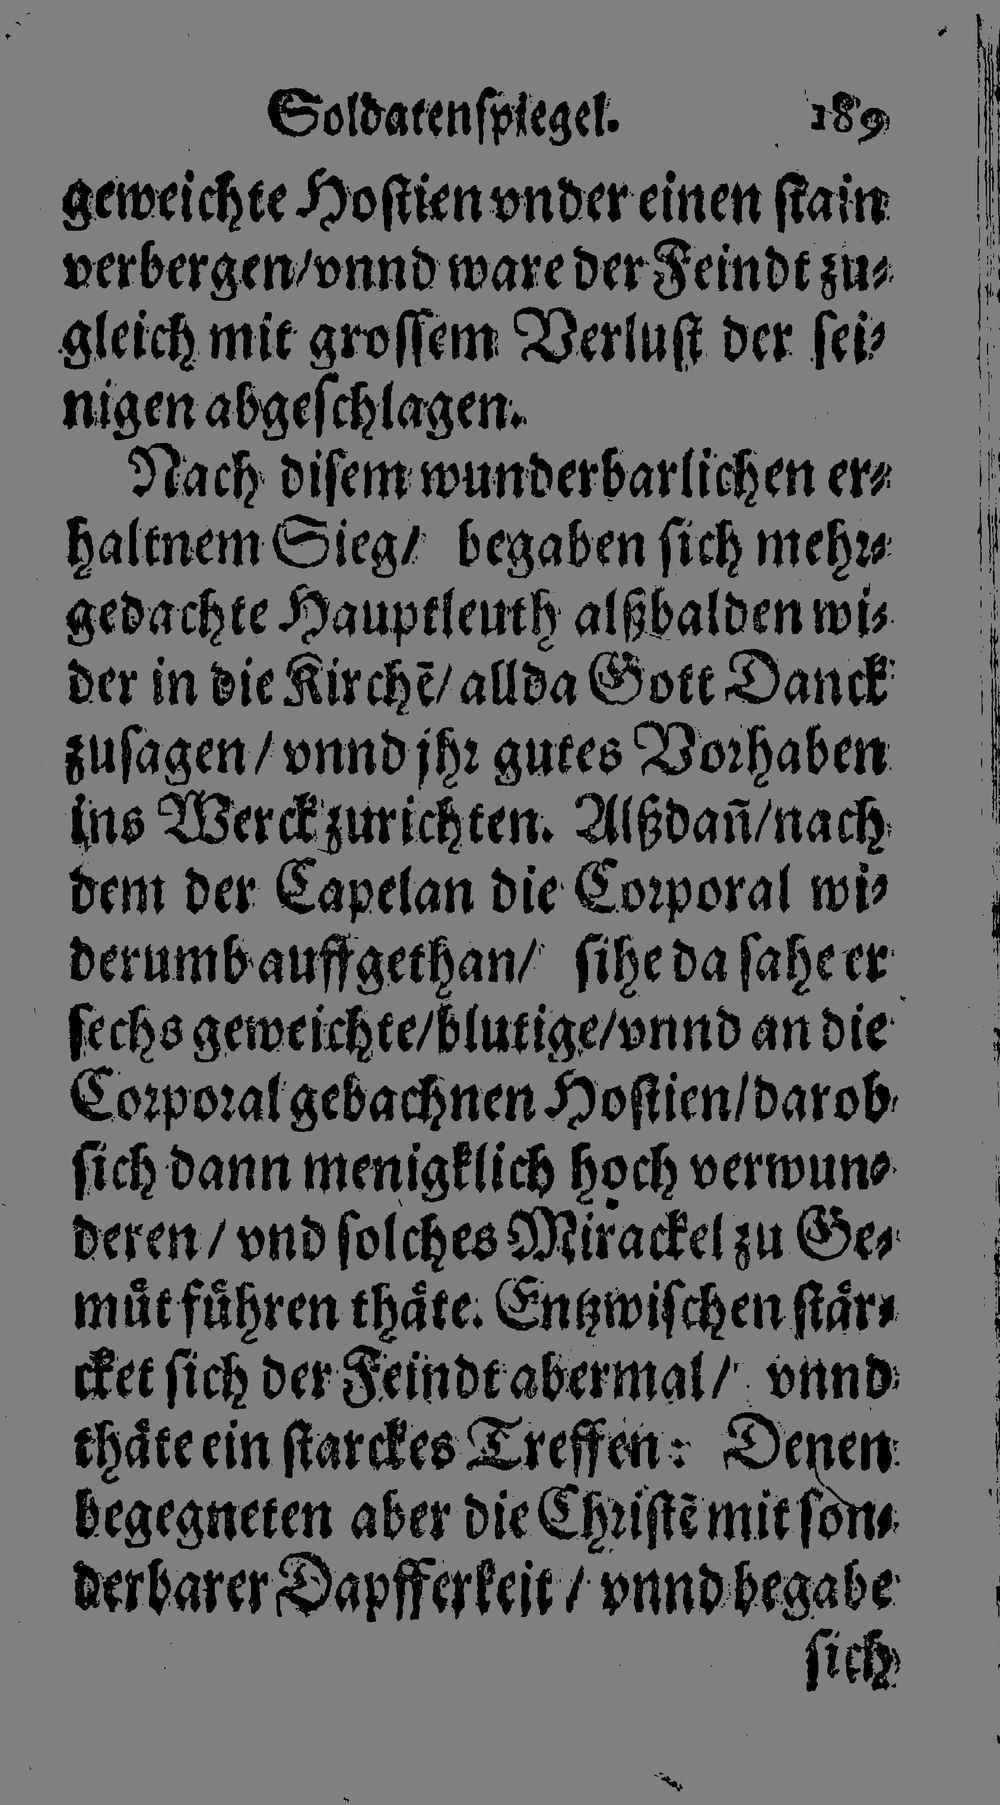 Soldatenspiegel. 189
geweichte Hostien vnder einen stain
verbergen/vnnd ware der Feindt zu⸗
gleich mit grossem Verlust der sei⸗
nigen abgeschlagen.
Nach disem wunderbarlichen er⸗
haltnem Sieg/ begaben sich mehr⸗
gedachte Hauptleuth alßbalden wi⸗
der in die Kirchē/ allda Gott Danck
zusagen / vnnd jhr gutes Vorhaben
ins Werck zurichten. Alßdañ/nach
dem der Capelan die Corporal wi⸗
derumb auffgethan/ sihe da sahe er
sechs geweichte/blutige/vnnd an die
Corporal gebachnen Hostien/darob
sich dann menigklich hoch verwun⸗
deren / vnd solches Mirackel zu Ge⸗
muͤt fuͤhren thaͤte. Entzwischen staͤr⸗
cket sich der Feindt abermal/ vnnd
thaͤte ein starckes Treffen: Denen
begegneten aber die Christē mit son⸗
derbarer Dapfferkeit / vnnd begabe
sich